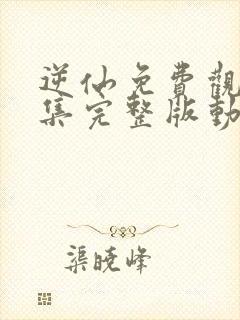 逆仙免費觀
集完整版動
渠曉峰